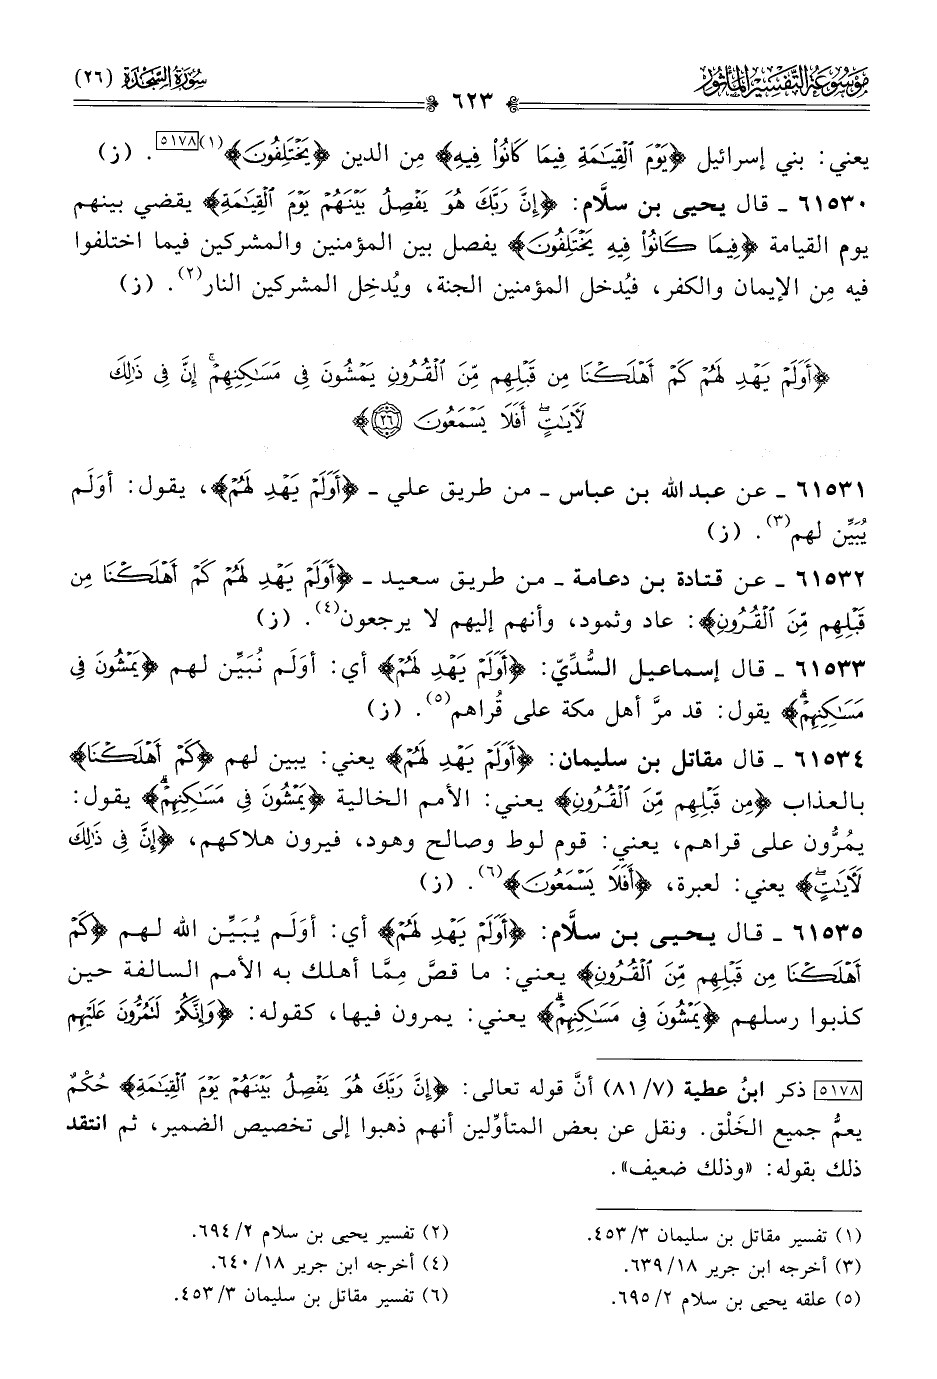 موسوعة التفسير المأثور
سورة السجدة (٢٦)
٦٢٣
يعني: بني إسرائيل ﴿يَوْمَ ٱلْقِيَٰمَةِ فِيمَا كَانُوا۟ فِيهِ﴾ مِن الدين ﴿يَخْتَلِفُونَ﴾(١)[٥١٧٨]. (ز)
٦١٥٣٠ ـ قال يحيى بن سلَّام: ﴿إِنَّ رَبَّكَ هُوَ يَفْصِلُ بَيْنَهُمْ يَوْمَ ٱلْقِيَٰمَةِ﴾ يقضي بينهم
يوم القيامة ﴿فِيمَا كَانُوا۟ فِيهِ يَخْتَلِفُونَ﴾ يفصل بين المؤمنين والمشركين فيما اختلفوا
فيه مِن الإيمان والكفر، فيُدخل المؤمنين الجنة، ويُدخِل المشركين النار(٢). (ز)
﴿أَوَلَمْ يَهْدِ لَهُمْ كَمْ أَهْلَكْنَا مِن قَبْلِهِم مِّنَ ٱلْقُرُونِ يَمْشُونَ فِى مَسَٰكِنِهِمْ ۚ إِنَّ فِى ذَٰلِكَ
لَءَايَٰتٍ ۖ أَفَلَا يَسْمَعُونَ ٢٦﴾
٦١٥٣١ ـ عن عبد الله بن عباس ـ من طريق علي ـ ﴿أَوَلَمْ يَهْدِ لَهُمْ﴾، يقول: أوَلَم
يُبَيِّن لهم(٣). (ز)
٦١٥٣٢ ـ عن قتادة بن دعامة ـ من طريق سعيد ـ ﴿أَوَلَمْ يَهْدِ لَهُمْ كَمْ أَهْلَكْنَا مِن
قَبْلِهِم مِّنَ ٱلْقُرُونِ﴾: عاد وثمود، وأنهم إليهم لا يرجعون(٤). (ز)
٦١٥٣٣ ـ قال إسماعيل السُّدِّيّ: ﴿أَوَلَمْ يَهْدِ لَهُمْ﴾ أي: أوَلَم نُبَيِّن لهم ﴿يَمْشُونَ فِى
مَسَٰكِنِهِمْ ۚ﴾ يقول: قد مرَّ أهل مكة على قُراهم(٥). (ز)
٦١٥٣٤ ـ قال مقاتل بن سليمان: ﴿أَوَلَمْ يَهْدِ لَهُمْ﴾ يعني: يبين لهم ﴿كَمْ أَهْلَكْنَا﴾
بالعذاب ﴿مِن قَبْلِهِم مِّنَ ٱلْقُرُونِ﴾ يعني: الأمم الخالية ﴿يَمْشُونَ فِى مَسَٰكِنِهِمْ ۚ﴾ يقول:
يمُرُّون على قراهم، يعني: قوم لوط وصالح وهود، فيرون هلاكهم، ﴿إِنَّ فِى ذَٰلِكَ
لَءَايَٰتٍ ۖ﴾ يعني: لعبرة، ﴿أَفَلَا يَسْمَعُونَ﴾(٦). (ز)
٦١٥٣٥ ـ قال يحيى بن سلَّام: ﴿أَوَلَمْ يَهْدِ لَهُمْ﴾ أي: أوَلَم يُبَيِّن الله لهم ﴿كَمْ
أَهْلَكْنَا مِن قَبْلِهِم مِّنَ ٱلْقُرُونِ﴾ يعني: ما قصَّ مِمَّا أهلك به الأمم السالفة حين
كذبوا رسلهم ﴿يَمْشُونَ فِى مَسَٰكِنِهِمْ ۚ﴾ يعني: يمرون فيها، كقوله: ﴿وَإِنَّكُمْ لَتَمُرُّونَ عَلَيْهِم
[٥١٧٨] ذكر ابنُ عطية (٧/ ٨١) أنَّ قوله تعالى: ﴿إِنَّ رَبَّكَ هُوَ يَفْصِلُ بَيْنَهُمْ يَوْمَ ٱلْقِيَٰمَةِ﴾ حُكْمٌ
يعمُّ جميع الخَلْق. ونقل عن بعض المتأوِّلين أنهم ذهبوا إلى تخصيص الضمير، ثم انتقد
ذلك بقوله: «وذلك ضعيف».
(١) تفسير مقاتل بن سليمان ٣/ ٤٥٣.
(٢) تفسير يحيى بن سلام ٢/ ٦٩٤.
(٣) أخرجه ابن جرير ١٨/ ٦٣٩.
(٤) أخرجه ابن جرير ١٨/ ٦٤٠.
(٥) علقه يحيى بن سلام ٢/ ٦٩٥.
(٦) تفسير مقاتل بن سليمان ٣/ ٤٥٣.